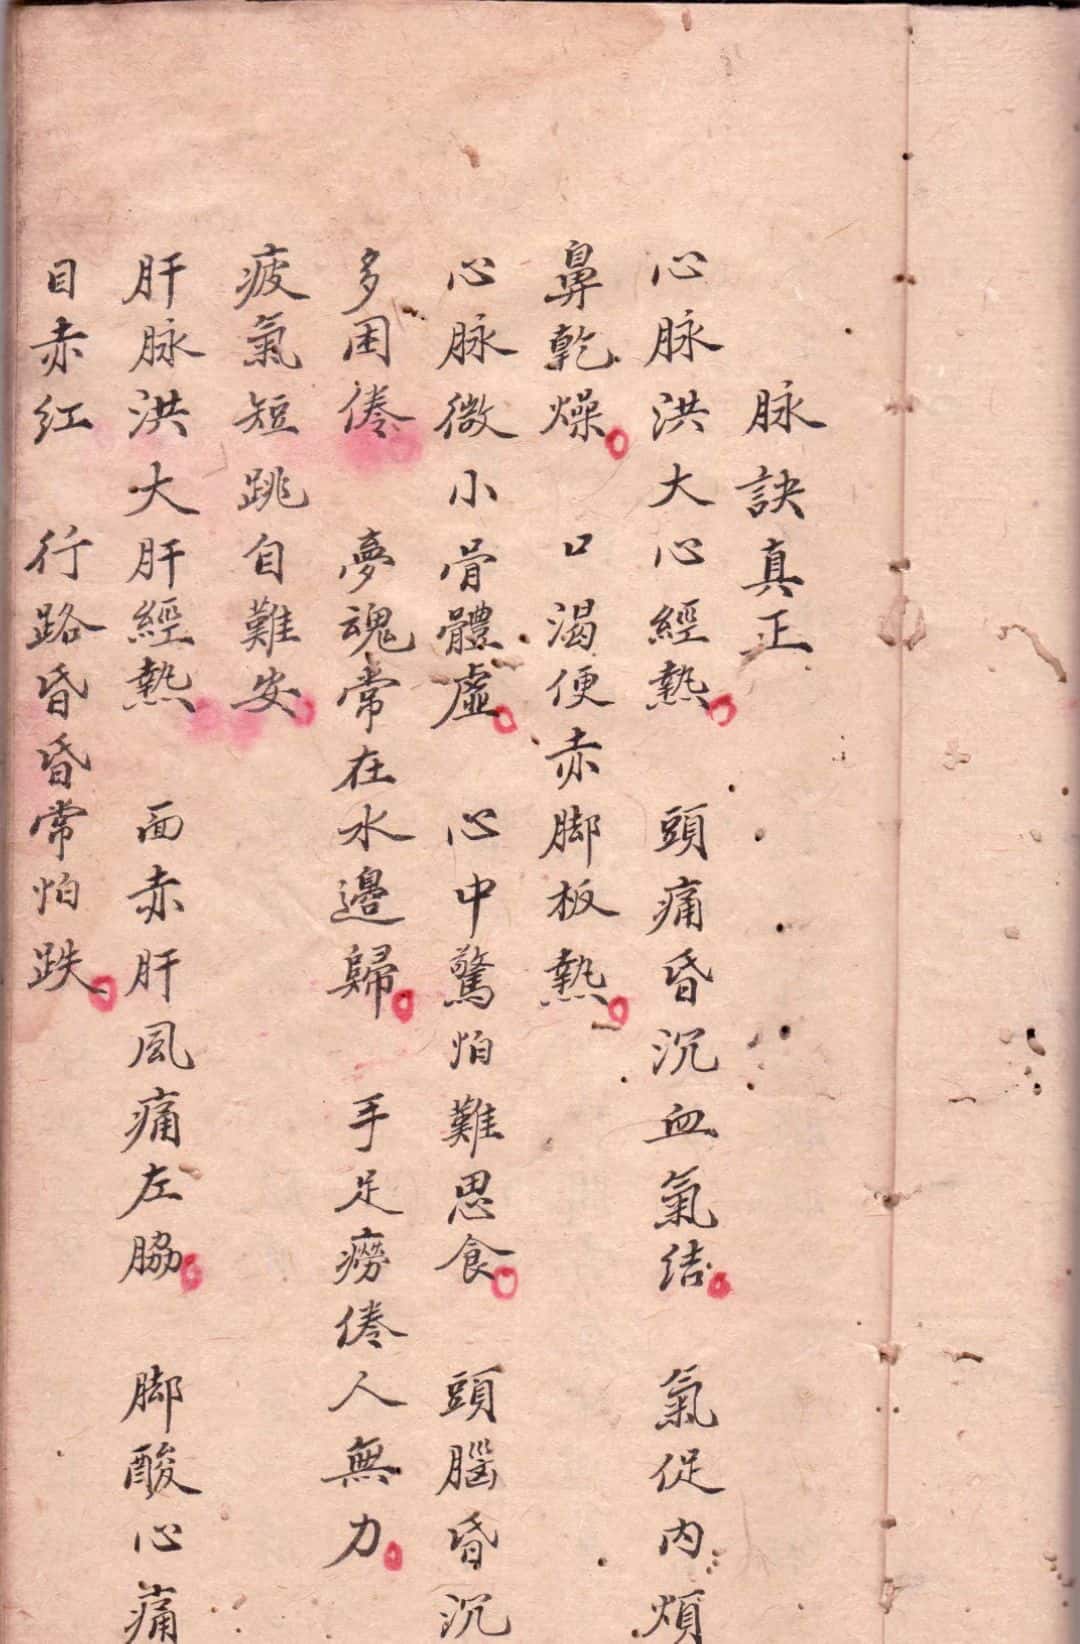 脉訣真正
心脉洪大心經熱 頭痛昏沉血氣結 氣促内煩
鼻乾燥 口渴便赤脚板熱
心脉微小骨體虛 心中驚怕難思食 頭腦昏沉
多困倦 夢魂常在水邊歸 手足癆倦人無力
疲氣短跳自難安
肝脉洪大肝經熱 面赤肝風痛左脇 脚酸心痛
目赤红 行路昏昏常怕跌